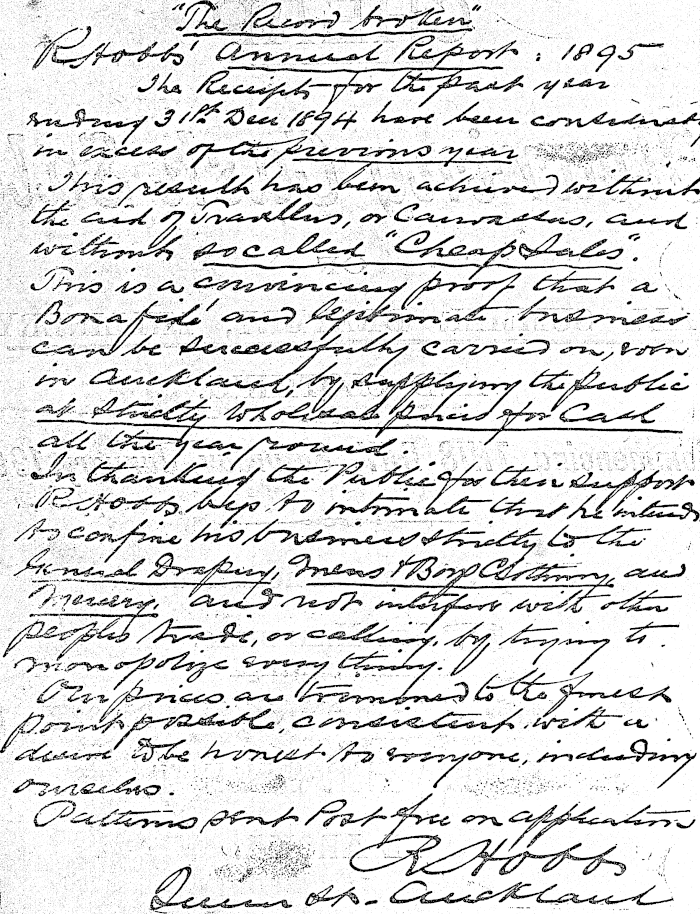 "The Record broken"
R Hobbs' Annual Report : 1895
The Receipts for the past year
ending 31st Dec 1894 have been considerably
in excess of the previous year
This result has been achieved without
the aid of Travellers, or Canvassers, and
without so called "Cheap Sales".
This is a convincing proof that a
Bonafide' and legitimate business
can be successfully carried on, even
in Auckland, by supplying the public
at Strictly Wholesale prices for Cash
all the year round
In thanking the Public for their support
R Hobbs begs to intimate that he intends
to confine his business strictly to the
General Drapery, Mens & Boys Clothing, and
Mercery, and not interfere with other
peoples trade, or calling, by trying to
monopolize everything.
Our prices are trimmed to the finest
point possible, consistent with a
desire to be honest to everyone, including
ourselves.
Patterns sent Post free on application
R Hobbs
Queen St - Auckland